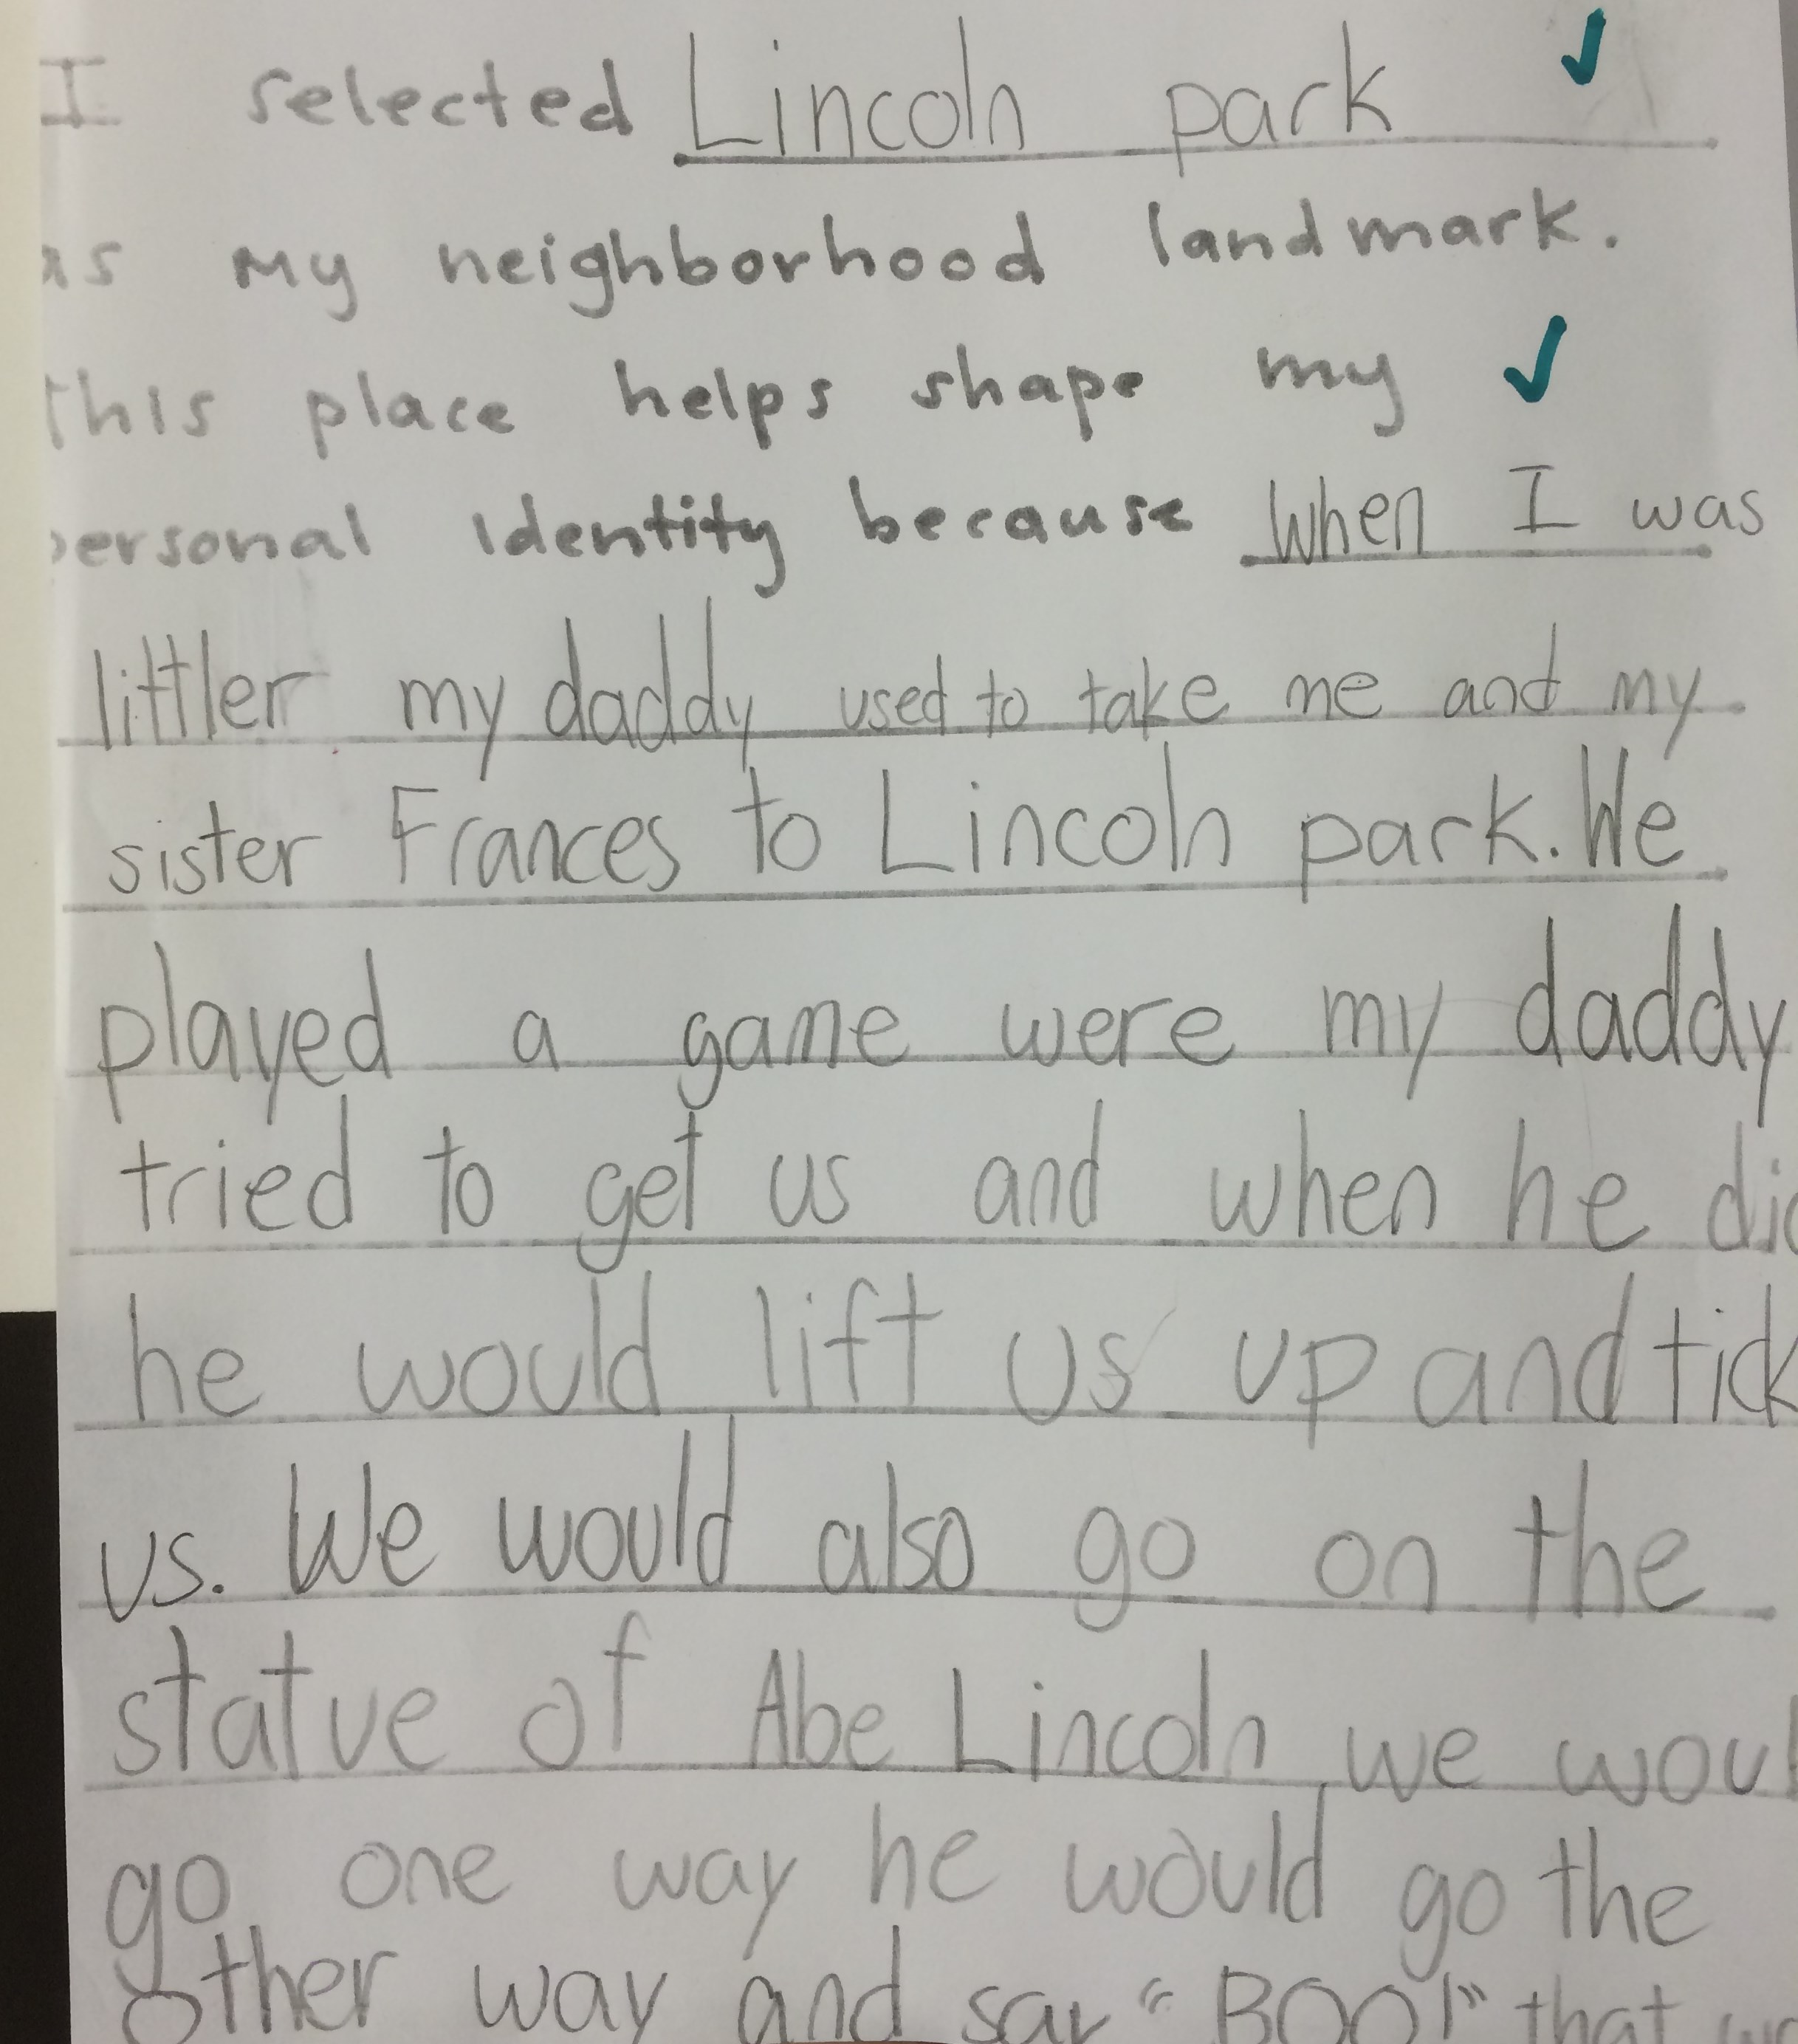 I selected Lincoln park
as my neighborhood landmark.
this place helps shape my
personal identity because when I was
littler my daddy used to take me and my
sister Frances to Lincoln park. We
played a game were my daddy
tried to get us and when he did
he would lift us up and tick
us. We would also go on the
statue of Abe Lincoln we woul
go one way he would go the
other way and say "BOO!" that